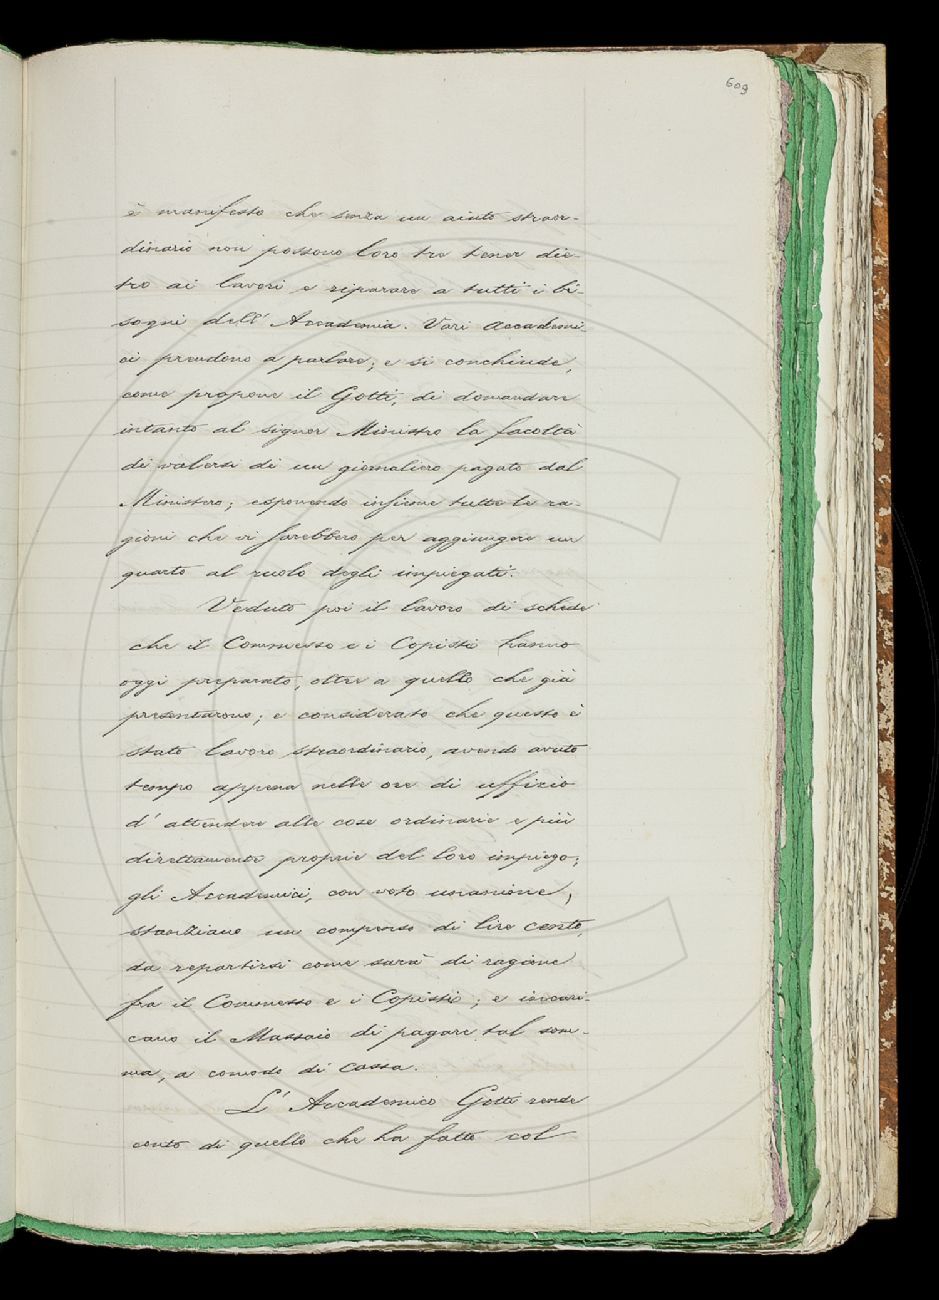 609
è manifesto che senza un aiuto straor-
dinario non possono loro tre tener die-
tro ai lavori e riparare a tutti i bi-
sogni dell' Accademia. Vari accademi-
ci prendono a parlare; e si conchiude,
come propone il Gotti, di domandare
intanto al signor Ministro la facoltà
di valersi di un giornaliero pagato dal
Ministero; esponendo insieme tutte le ra-
gioni che vi sarebbero per aggiungere un
quarto al ruolo degli impiegati.
Veduto poi il lavoro di schede
che il Commesso e i Copisti hanno
oggi preparato, oltre a quello che già
presentarono; e considerato che questo è
stato lavoro straordinario, avendo avuto
tempo appena nelle ore di uffizio
d' attendere alle cose ordinarie e più
direttamente proprie del loro impiego;
gli Accademici, con voto unanime,
stanziano un compenso di lire cento,
da repartirsi come sarà di ragione
fra il Commesso e i Copisti; e incari-
cano il Massaio di pagare tal som-
ma, a comodo di Cassa.
L' Accademico Gotti rende
conto di quello che ha fatto col